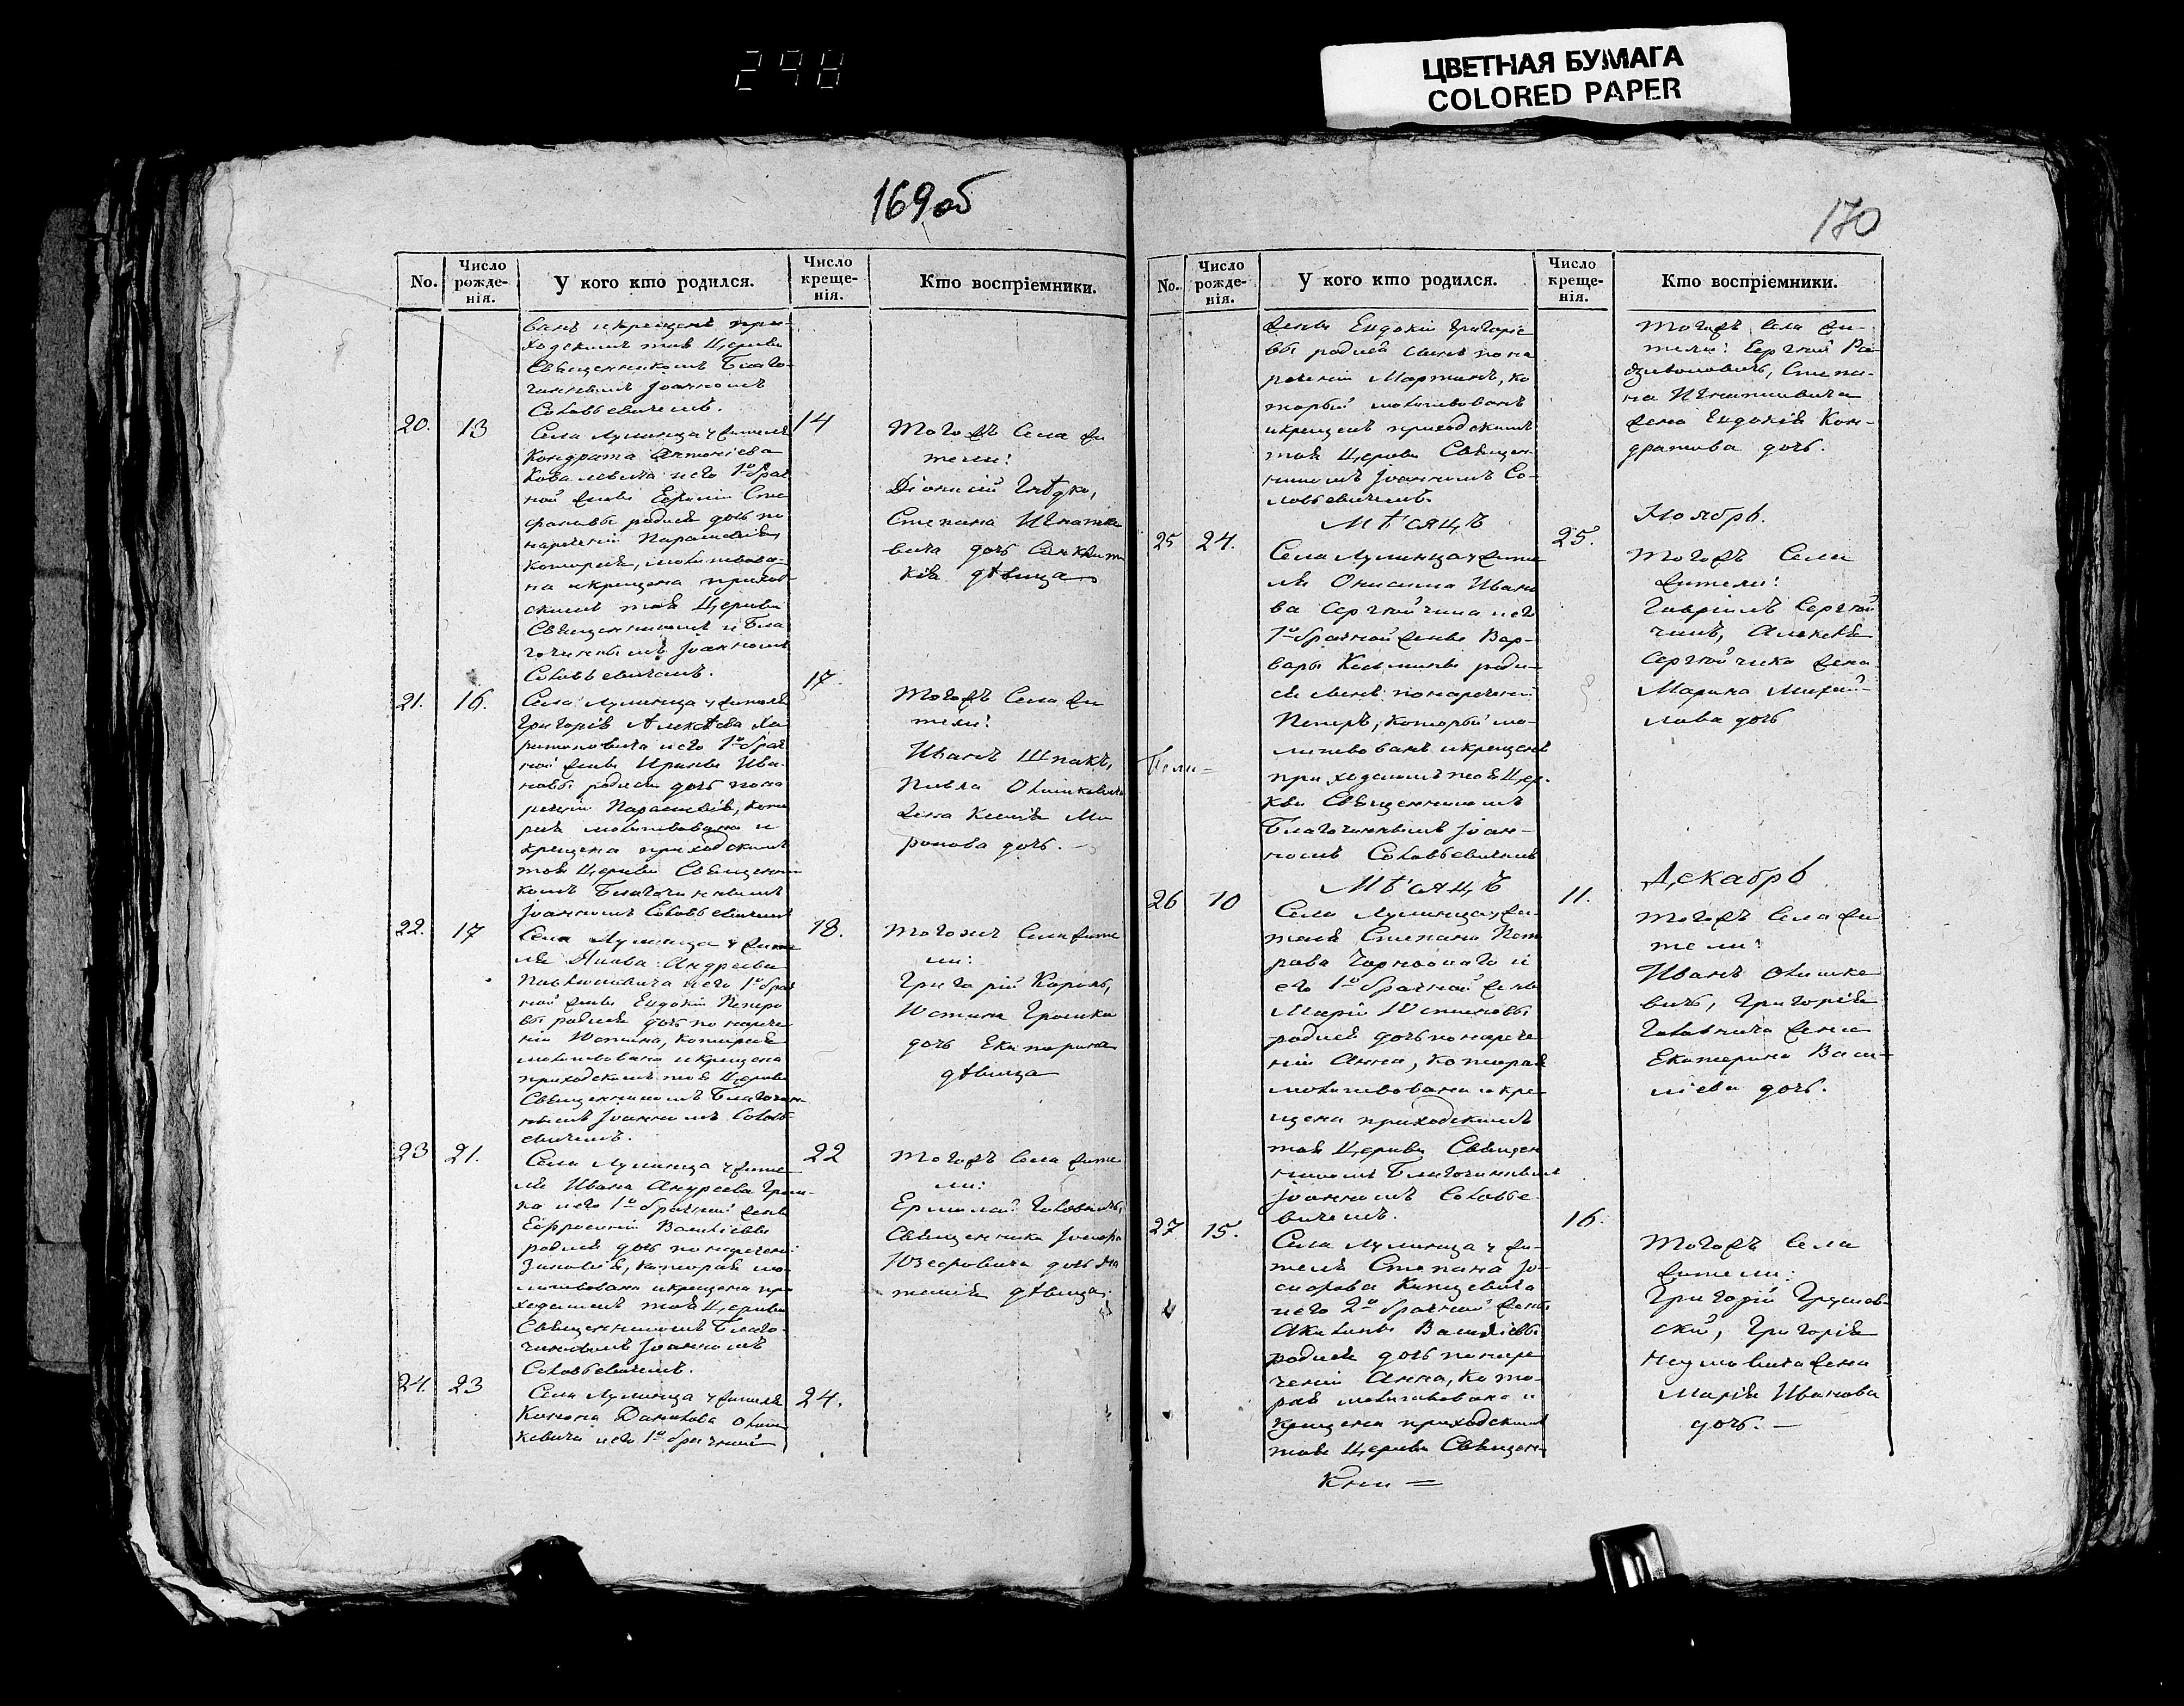 298
ЦВЕТНАЯ БУМАГА
COLORED PAPER
169об
No.
Число рожденія.
У кого кто родился.
Число крещенія.
Кто воспріемники.
ванъ и крещенъ при-
ходскимъ тоя Церкви
Священникомъ Благо-
чиннымъ Іоанномъ
Соловьевичемъ.
20. 13 14
Села Лулинца у жителя
Кондрата Антоніева
Ковалевича и его 1о брач
ной жены Ефиміи Сте
фановы родися дочь по
нареченіи Параскевія,
которая, молитвова-
на и крещена приход
скимъ тоя Церкви
Священникомъ и Бла
гочиннымъ Іоанномъ
Соловьевичемъ.
Тогожъ Села жи
тели:
Діонисій Гнѣдко,
Степана Игнатке
вича дочь
дѣвица
21. 16. 17
Села Лулинца у жителя
Григорія Алексѣева Ха
ритоновича и его 1о брач
ной жены Ирины Ива-
новы родися дочь пона
реченіи Параскевія, кото
рая молитвована и
крещена приходскимъ
тоя Церкви Священни
комъ Благочиннымъ
Іоанномъ Соловьевичемъ
Тогожъ Села жи
тели:
Иванъ Шпакъ,
Павла Олишкевича
жена Ксенія Ми
ронова дочь.
22. 17 18.
Села Лулинца у жите
ля Якова Андреева
и его 1о брач
ной жены Евдокіи Петро
вы родися дочь по нарече
ніи Юстина, которая
молитвована и крещена
приходскимъ тоя Церкви
Священникомъ Благочин-
нымъ Іоанномъ Соловь-
евичемъ.
Тогожъ Села жите
ли:
Григорій Король,
Юстина Громика
дочь Екатерина
дѣвица
23 21. 22
Села Лулинца у жите
ля Ивана Андреева Гром-
ка и его 1о брачной жены
Ефросиніи Василіевы
родися дочь по наречені
Зиновія, которая мо
литвована и крещена при
ходскимъ тоя Церкви
Священникомъ Благо-
чиннымъ Іоанномъ
Соловьевичемъ.
Тогожъ Села жите
ли:
Ермолай Головничъ,
Священника Іосифа
Юзефовича дочь
дѣвица.
24. 23 24.
Села Лулинца у жителя
Конона Данилова Олиш
кевича и его 1о брачной
170
No.
Число рожденія.
У кого кто родился.
Число крещенія.
Кто воспріемники.
жены Евдокіи Григоріе
вы родися сынъ по на
реченіи Мартинъ, ко
торый молитвованъ
и крещенъ приходскимъ
тоя Церкви Священ-
никомъ Іоанномъ Со-
ловьевичемъ.
Тогожъ Села жи-
тели: Сергій
Степа-
на Игнатовича
жена Евдокія Кон-
дратова дочь.
Мѣсяцъ Ноябрь.
25 24. 25.
Села Лулинца у жите
ля Онисима Ивано
ва и его
1о брачной жены Вар-
вары Козмины роди-
ся сынъ по нареченіи
Петръ, который мо-
литвованъ и крещенъ
приходскимъ тоя Цер-
кви Священникомъ
Благочиннымъ Іоан-
номъ Соловьевичемъ
Тогожъ Села
жители:
Гавріилъ
Алексѣя
жена
Марина Михай-
лова дочь
Мѣсяцъ Декабрь
26 10 11.
Села Лулинца у жи-
теля Степана Пет
рова Чорновскаго и
его 1о брачной жены
Маріи Юстиновы
родися дочь по нарече
ніи Анна, которая
молитвована и кре-
щена приходскимъ
тоя Церкви Священ
никомъ Благочиннымъ
Іоанномъ Соловье-
вичемъ.
Тогожъ Села жи
тели:
Иванъ Олишке
вичъ, Григорія
Головнича жена
Екатерина Васи-
ліева дочь.
27 15. 16.
Села Лулинца у жи-
теля Степана Іо-
сифова
и его 2о брачной жены
Акилины Василіевы
родися дочь по наре
ченіи Анна, кото-
рая молитвована и
крещена приходскимъ
тоя Церкви Священ-
Тогожъ Села
жители:
Григорій
Григорія
Наумовича жена
Марія Иванова
дочь.